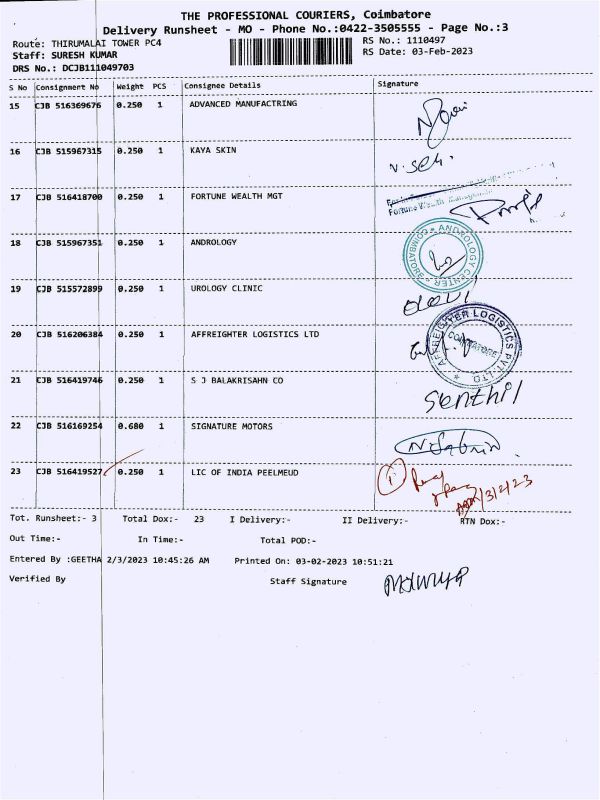 THE PROFESSIONAL COURIERS, Coimbatore
Delivery Runsheet - MO - Phone No.:0422-3505555 - Page No.:3
Route: THIRUMALAI TOWER PC4
RS No.: 1110497
Staff: SURESH KUMAR
RS Date: 03-Feb-2023
DRS No.: DCJB111049703
S No Consignment No Weight PCS Consignee Details Signature
15 CJB 516369676 0.250 1 ADVANCED MANUFACTRING
16 CJB 515967315 0.250 1 KAYA SKIN
17 CJB 516418700 0.250 1 FORTUNE WEALTH MGT
Fortune Wealth Management
18 CJB 515967351 0.250 1 ANDROLOGY
ANDROLOGY CENTER * COIMBATORE *
19 CJB 515572899 0.250 1 UROLOGY CLINIC
20 CJB 516206384 0.250 1 AFFREIGHTER LOGISTICS LTD
AFFREIGHTER LOGISTICS PVT-LTD
COIMBATORE
21 CJB 516419746 0.250 1 S J BALAKRISAHN CO
Senthil
22 CJB 516169254 0.680 1 SIGNATURE MOTORS
23 CJB 516419527 0.250 1 LIC OF INDIA PEELMEUD
3/2/23
Tot. Runsheet:- 3 Total Dox:- 23 I Delivery:- II Delivery:- RTN Dox:-
Out Time:- In Time:- Total POD:-
Entered By :GEETHA 2/3/2023 10:45:26 AM Printed On: 03-02-2023 10:51:21
Verified By Staff Signature